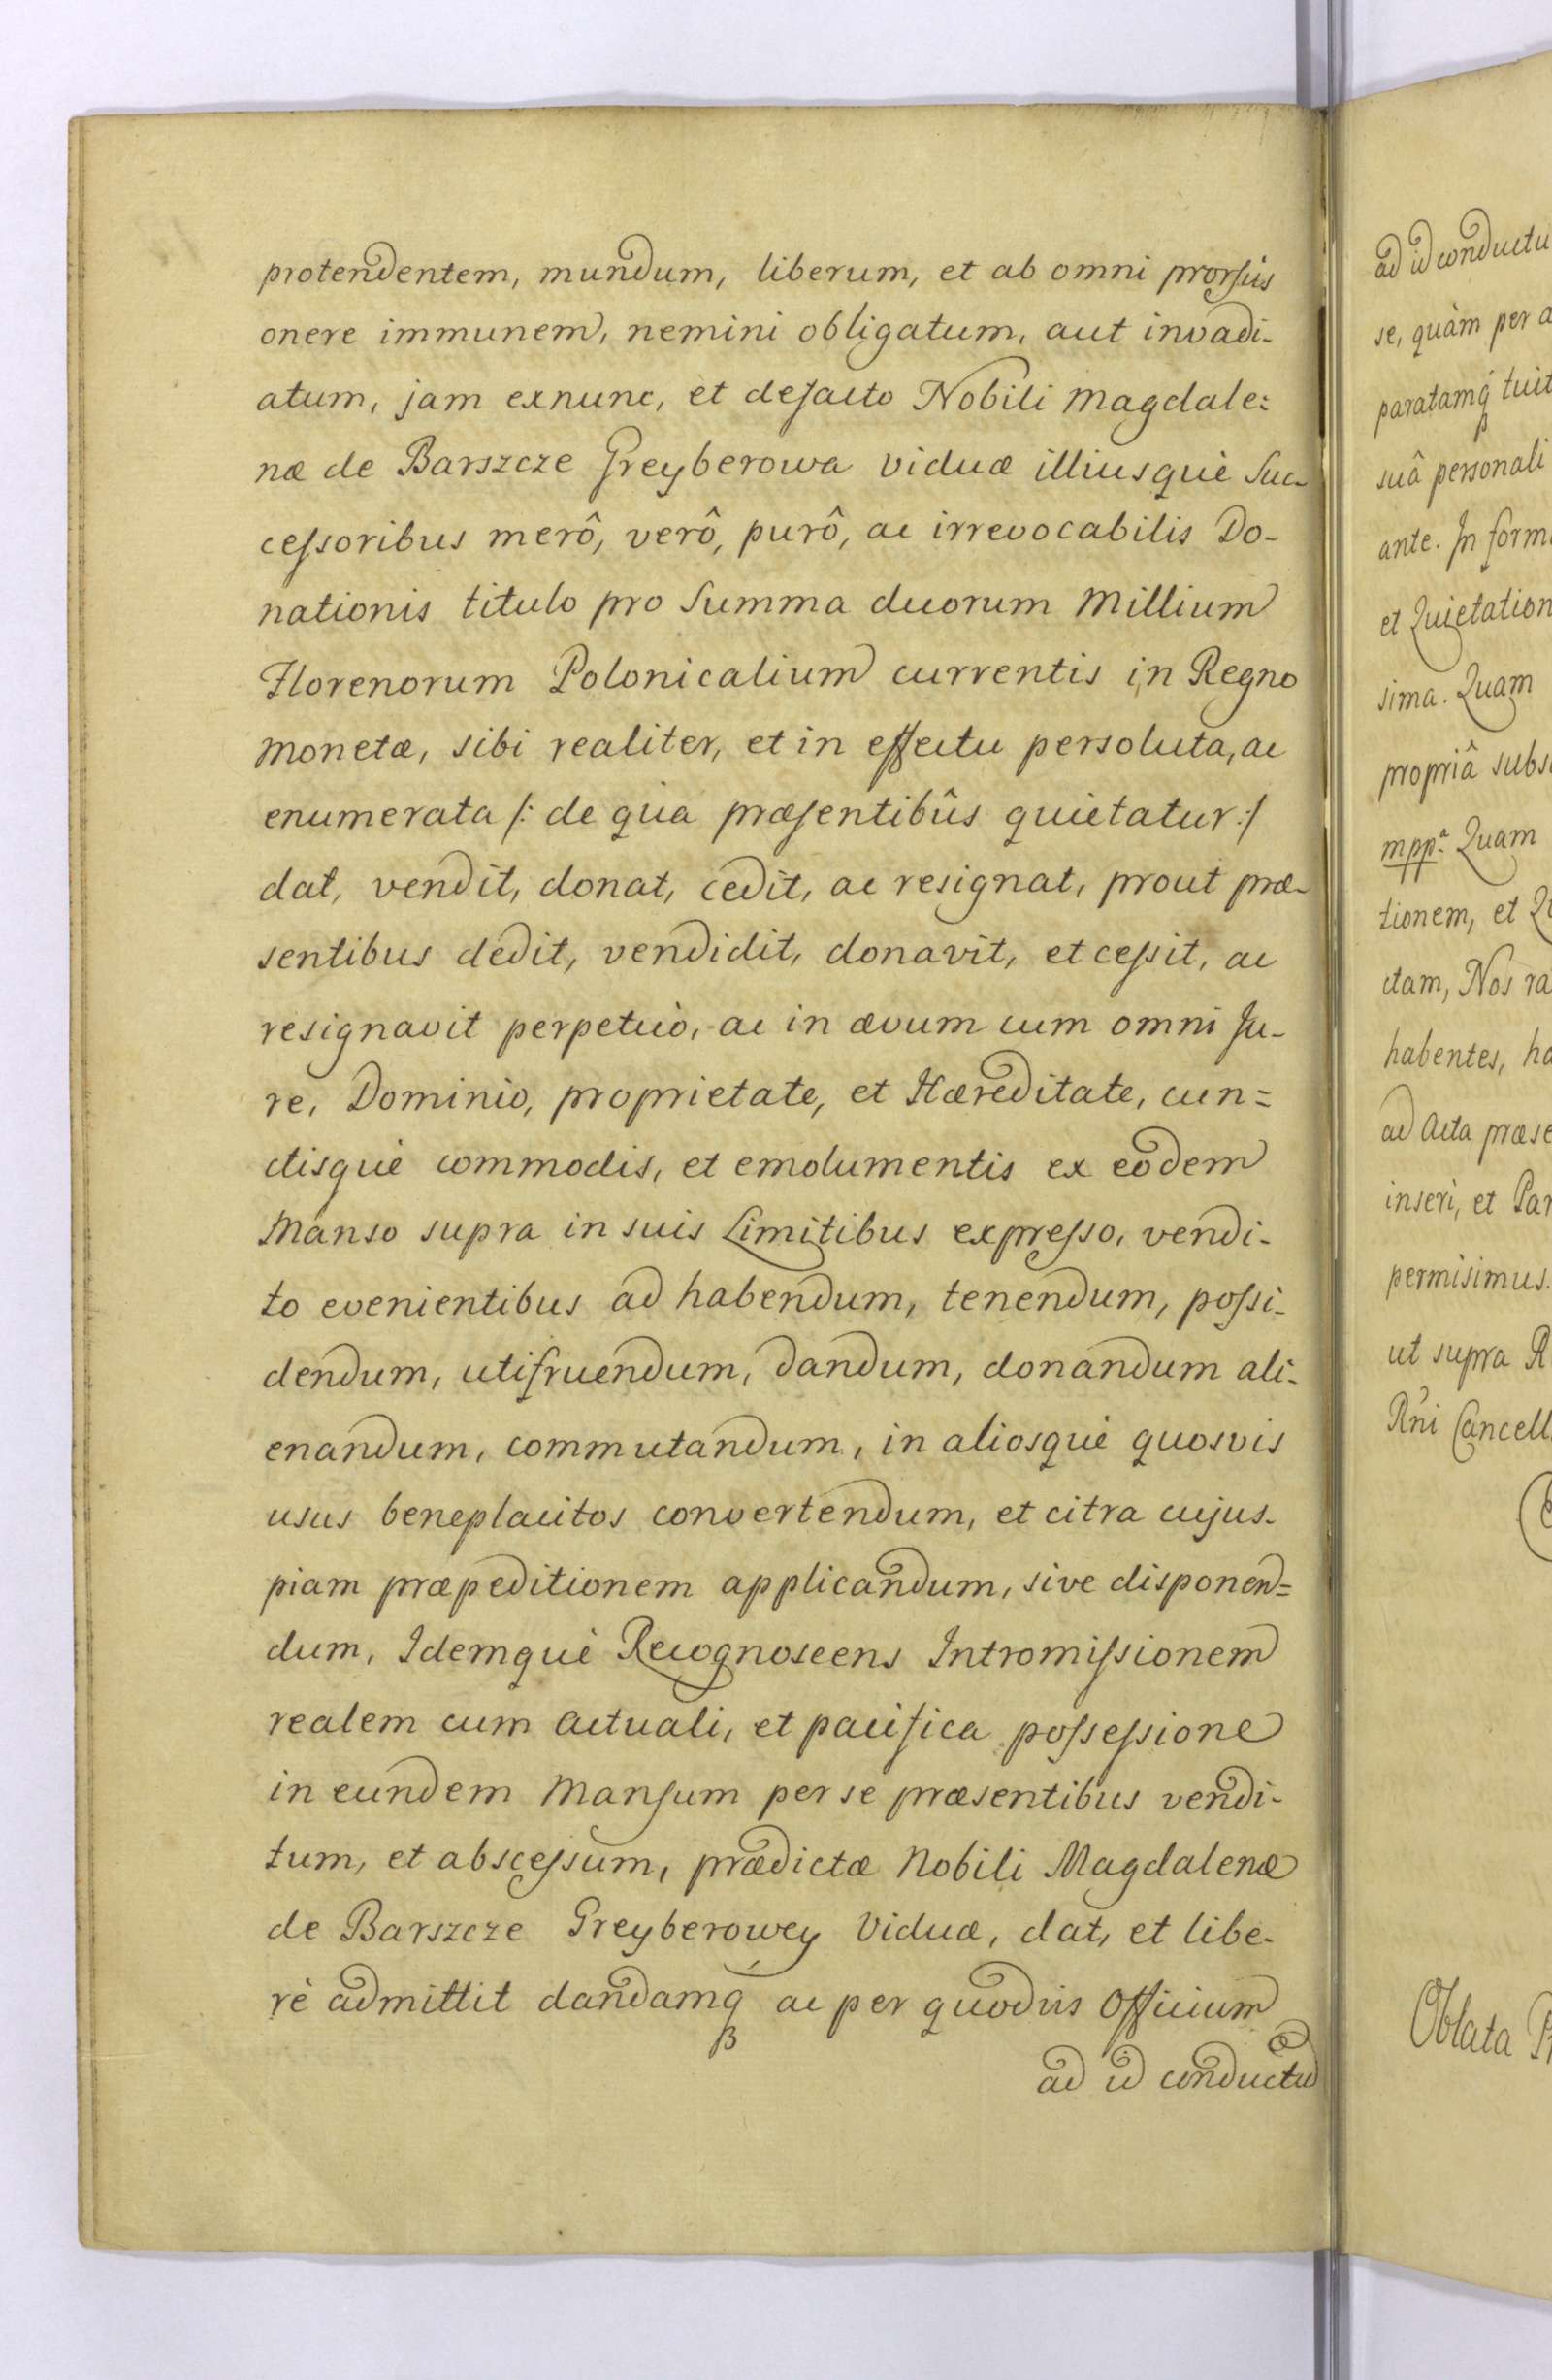 protendentem, mundum, liberum, et ab omni prorsùs
onere immunem, nemini obligatum, aut invadi-
atum, jam exnunc, et defacto Nobili Magdale:
næ de Barszcze Greyberowa viduæ illiusquè Suc-
cessoribus merô, verô, purô, ac irrevocabilis Do-
nationis titulo pro Summa duorum Millium
Florenorum Polonicalium currentis in Regno
Monetæ, sibi realiter, et in effectu persoluta, ac
enumerata /: de qua præsentibûs quietatur :/
dat, vendit, donat, cedit, ac resignat, prout præ-
sentibus dedit, vendidit, donavit, et cessit, ac
resignavit perpetuò, ac in ævum cum omni Ju-
re, Dominio, proprietate, et Hæreditate, cun=
ctisquè commodis, et emolumentis ex eodem
Manso supra in suis Limitibus expresso, vendi-
to evenientibus ad habendum, tenendum, possi-
dendum, utifruendum, dandum, donandum ali-
enandum, commutandum, in aliosquè quosvis
usus beneplacitos convertendum, et citra cujus-
piam præpeditionem applicandum, sive disponen=
dum, Idemquè Recognoscens Intromissionem
realem cum actuali, et pacifica possessione
in eundem Mansum per se præsentibus vendi-
tum, et abscessum, prædictæ Nobili Magdalenæ
de Barszcze Greyberowey Viduæ, dat, et libe-
rè admittit dandamq́ ac per quodvis Officium
ad id conductu
ad id conductu
se, quàm per a
paratamq́ tuit
suâ personali
ante. In form
et Quietation
sima. Quam
propriâ subs
mppª Quam
tionem, et Q
ctam, Nos ra
habentes, ha
ad Acta præse
inseri, et Par
permisimus.
ut supra R
Rńi Cancell
Oblata P